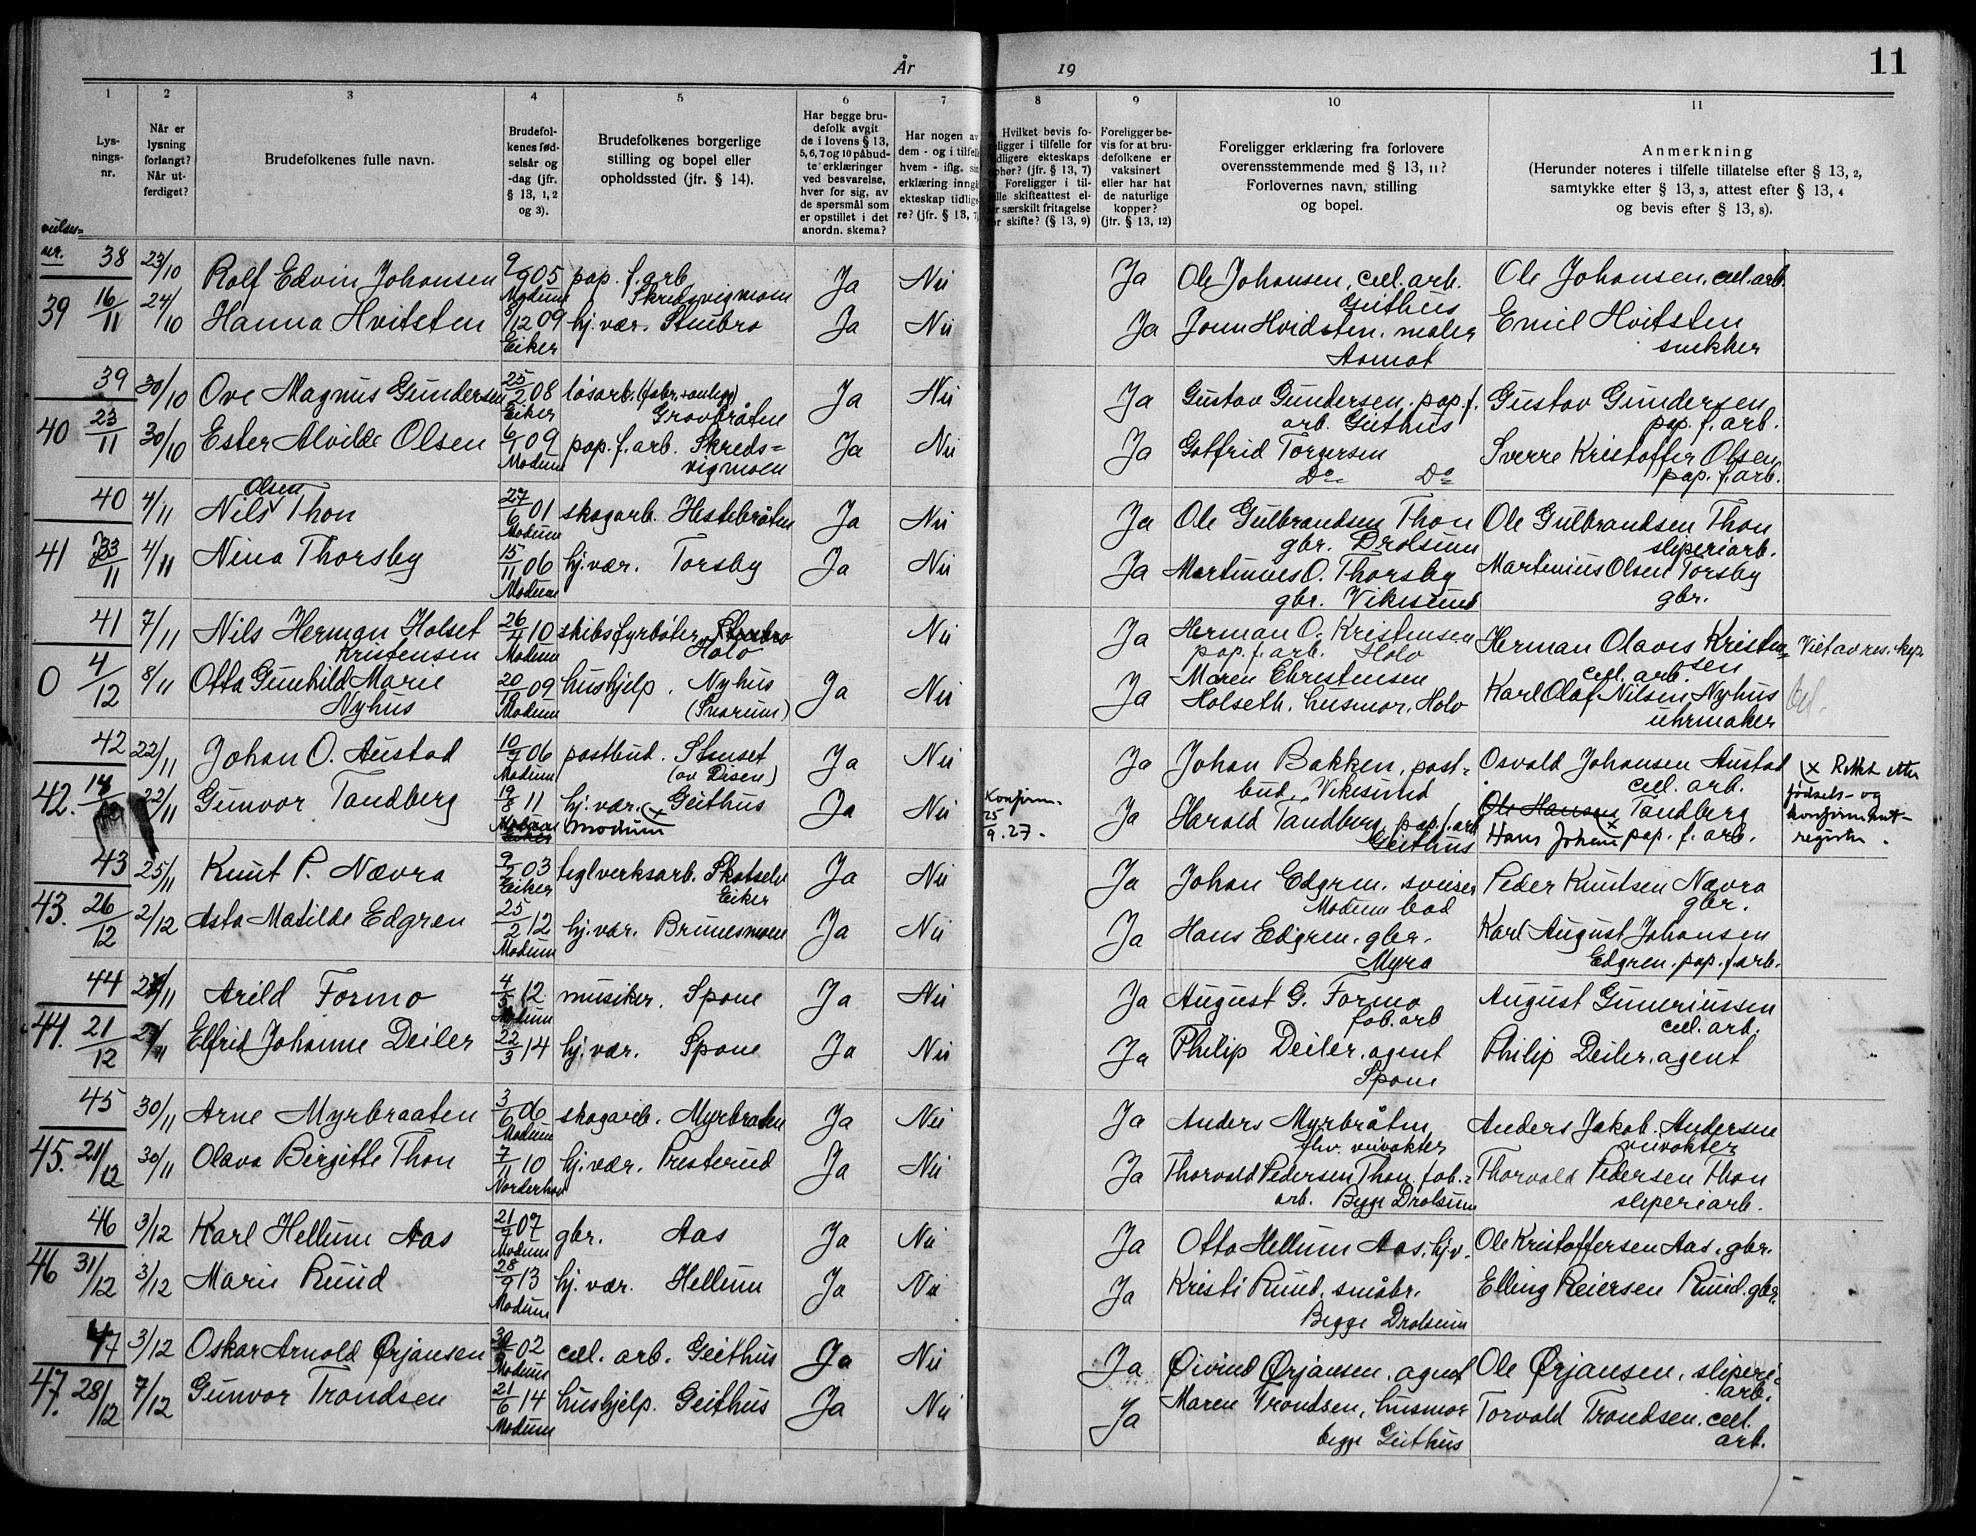 År 19 11
1 2 3 4 5 6 7 8 9 10 11
Lys-
nings-
nr.
Når er
lysning
forlangt?
Når ut-
ferdiget?
Brudefolkenes fulle navn.
Brudefol-
kenes fød-
selsår og
-dag (jfr.
§ 13, 1, 2
og 3).
Brudefolkenes borgerlige
stilling og bopel eller
opholdssted (jfr. § 14).
Har begge bru-
defolk avgit
de i lovens § 13,
5, 6, 7 og 10 påbud-
te erklæringer
ved besvarelse,
hver for sig, av
de spørsmål som
er opstillet i det
anordn. skema?
Har nogen av
dem - og i tilfelle
hvem - iflg. sin
erklæring inngå
ekteskap tidlige-
re? (jfr. § 13, 7
Hvilket bevis fo-
religger i tilfelle for
tidligere ekteskaps
ophør? (jfr. § 13, 7)
Foreligger i til-
felle skifteattest el-
ler særskilt fritagelse
for skifte? (§ 13, 9)
Foreligger be-
vis for at bru-
defolkene er
vaksinert
eller har hat
de naturlige
kopper?
(jfr. § 13, 12)
Foreligger erklæring fra forlovere
overensstemmende med § 13, 11?
Forlovernes navn, stilling
og bopel.
Anmerkning
(Herunder noteres i tilfelle tillatelse efter § 13, 2,
samtykke efter § 13, 3, attest efter § 13, 4
og bevis efter § 13, 8).
vielses-
nr.
38 23/10 Rolf Edvin Johansen 9/9 05 Modum pap. f. arb Skredsvigmoen Ja Nei Ja Ole Johansen, cell. arb. Geithus Ole Johansen, cell. arb.
39 16/11 24/10 Hanna Hvitsten /12 09 Eiker hj. vær. Stenbro Ja Nei Ja Joun Hvidsten, maler Aamot Emil Hvitsten snekker
39 30/10 Ove Magnus Gundersen 25/2 08 Eiker løsarb. Grovbråten Ja Nei Ja Gustav Gundersen, pap. f. arb. Geithus Gustav Gundersen pap. f. arb.
40 23/11 30/10 Ester Alvilde Olsen 6/9 09 Modum pap. f. arb. Skreds=vigmoen Ja Nei Ja Gotfrid Torgersen Do Do Sverre Kristoffer Olsen pap. f. arb.
40 4/11 Nils Olsen Thon 27/6 01 Modum skogarb. Hestebråten Ja Nei Ja Ole Gulbrandsen Thon gbr. Drolsum Ole Gulbrandsen Thon sliperiarb.
41 23/11 4/11 Nina Thorsby 15/11 06 Modum hj. vær. Torsby Ja Nei Ja Martinius O. Thorsby gbr. Vikesund Martinius Olsen Torsby gbr.
41 7/11 Nils Herman Holset Kristensen 26/4 10 Modum skibsfyrbøter, Stenbro Holo Nei Ja Herman O. Kristensen pap. f. arb. Holo Herman Olaves Kristen=sen cell. arb. Viet av res. kap.
0 4/12 8/11 Otta Gunhild Marie Nyhus 20/12 09 Modum hushjelp. Nyhus (Snarum) Ja Nei Ja Maren Christensen Holseth, husmor, Holo Karl Olaf Nilsen Nyhus uhrmaker
42 22/11 Johan O. Austad 10/7 06 Modum postbud. Stenset (av Disen) Ja Nei Ja Johan Bakken, post=bud, Vikesund Osvald Johansen Austad cell. arb. x Rettet etter
42. 14/12 22/11 Gunvor Tandberg 19/8 11 Modum Eiker hj. vær. x Geithus Modum Ja Nei Konfirm. 25/9.27. Ja Harald Tandberg, pap. f. arb Geithus Ole Hansen Tandberg x Hans Johan pap. f. arb. fødsels- og konfirmant-register.
43 25/11 Knut P. Nævra 9/7 03 Eiker teglverksarb. Skotselv Eiker Ja Nei Ja Johan Edgren, sveiser Modum bad Peder Knutsen Nævra gbr.
43. 26/12 2/12 Asta Matilde Edgren 25/2 12 Modum hj. vær. Brunesmoen Ja Nei Ja Hans Edgren, gbr. Myra Karl August Johansen Edgren, pap. f. arb.
44 /11 Arild Formo 4/5 12 Modum musiker. Spone Ja Nei Ja August G. Formo fab. arb August Guneriussen cell. arb.
44. 21/12 /11 Elfrid Johanne Deiler 22/3 14 hj. vær. Spone Ja Nei Ja Philip Deiler, agent Spone Philip Deiler, agent
45 30/11 Arne Myrbraaten 3/6 06 Modum skogarb. Myrbraaten Ja Nei Ja Anders Myrbråten fhv. veivokter Anders Jakob. Andersen veivokter
45. 21/12 30/11 Olava Birgitte Thon 7/11 10 Norderhov hj. vær. Presterud Ja Nei Ja Thorvald Pedersen Thon, fab.=arb. Begge Drolsum Thorvald Pedersen Thon sliperiarb.
46 3/12 Karl Hellum Aas 21/7 07 Modum gbr. Aas Ja Nei Ja Otto Hellum Aas, hj.v. Ole Kristoffersen Aas, gbr.
46 31/12 3/12 Marie Ruud 28/9 13 Modum hj. vær. Hellum Ja Nei Ja Kristi Ruud, småbr. Begge Drolsum Elling Reiersen Ruud, gbr.
47 3/12 Oskar Arnold Ørjansen 02 Modum cell. arb. Geithus Ja Nei Ja Øivind Ørjansen, agent Ole Ørjansen, sliperi=arb.
47. 28/12 7/12 Gunvor Trondsen 21/6 14 Modum hushjelp. Geithus Ja Nei Ja Maren Trondsen, husmor begge Geithus Torvald Trondsen, cell. arb.